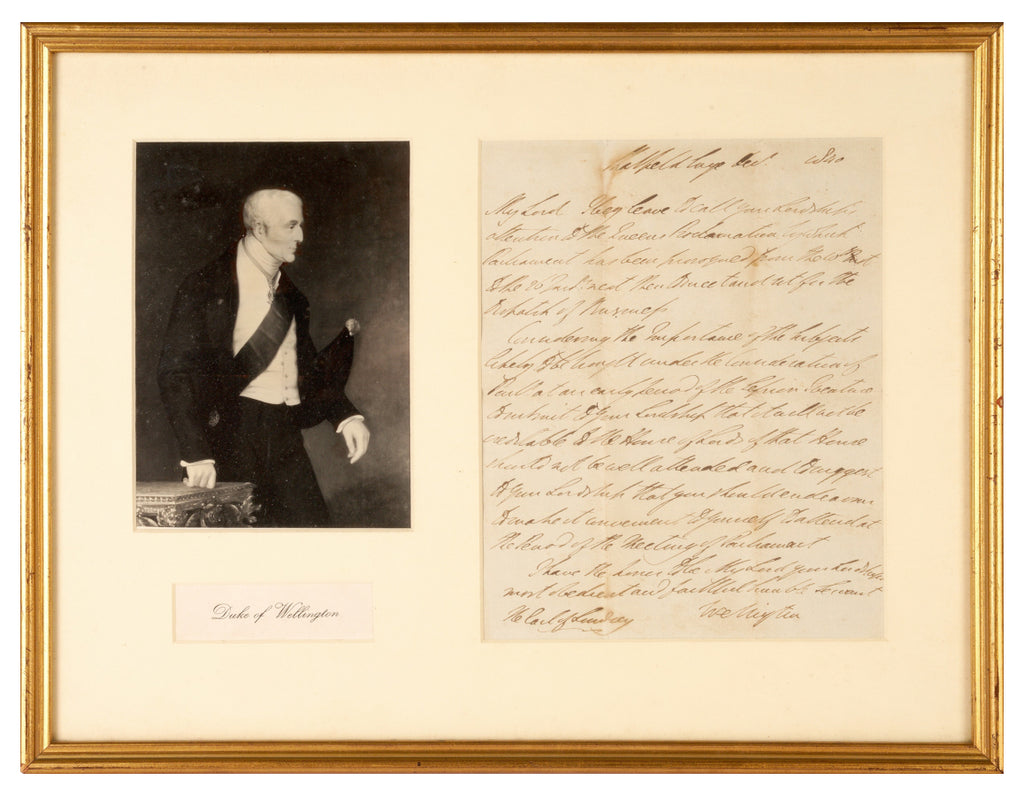 Duke of Wellington
Strathfieldsaye Decr 1840
My Lord I beg leave to call your Lordship's
attention to the Queen's Proclamation by which
Parliament has been prorogued from the
to the next then to meet and sit for the
Dispatch of Business
Considering the Importance of the Subjects
likely to be brought under the Consideration of
Parlt at an early period of the Session I venture
to submit to your Lordship that it will not be
creditable to the House of Lords if that House
should not be well attended and to suggest
to your Lordship that you should endeavour
to make it convenient to yourself to attend at
the Period of the Meeting of Parliament
I have the honor to be My Lord your Lordship's
most obedient and faithful humble Servant
Wellington
The Earl of Lindsey